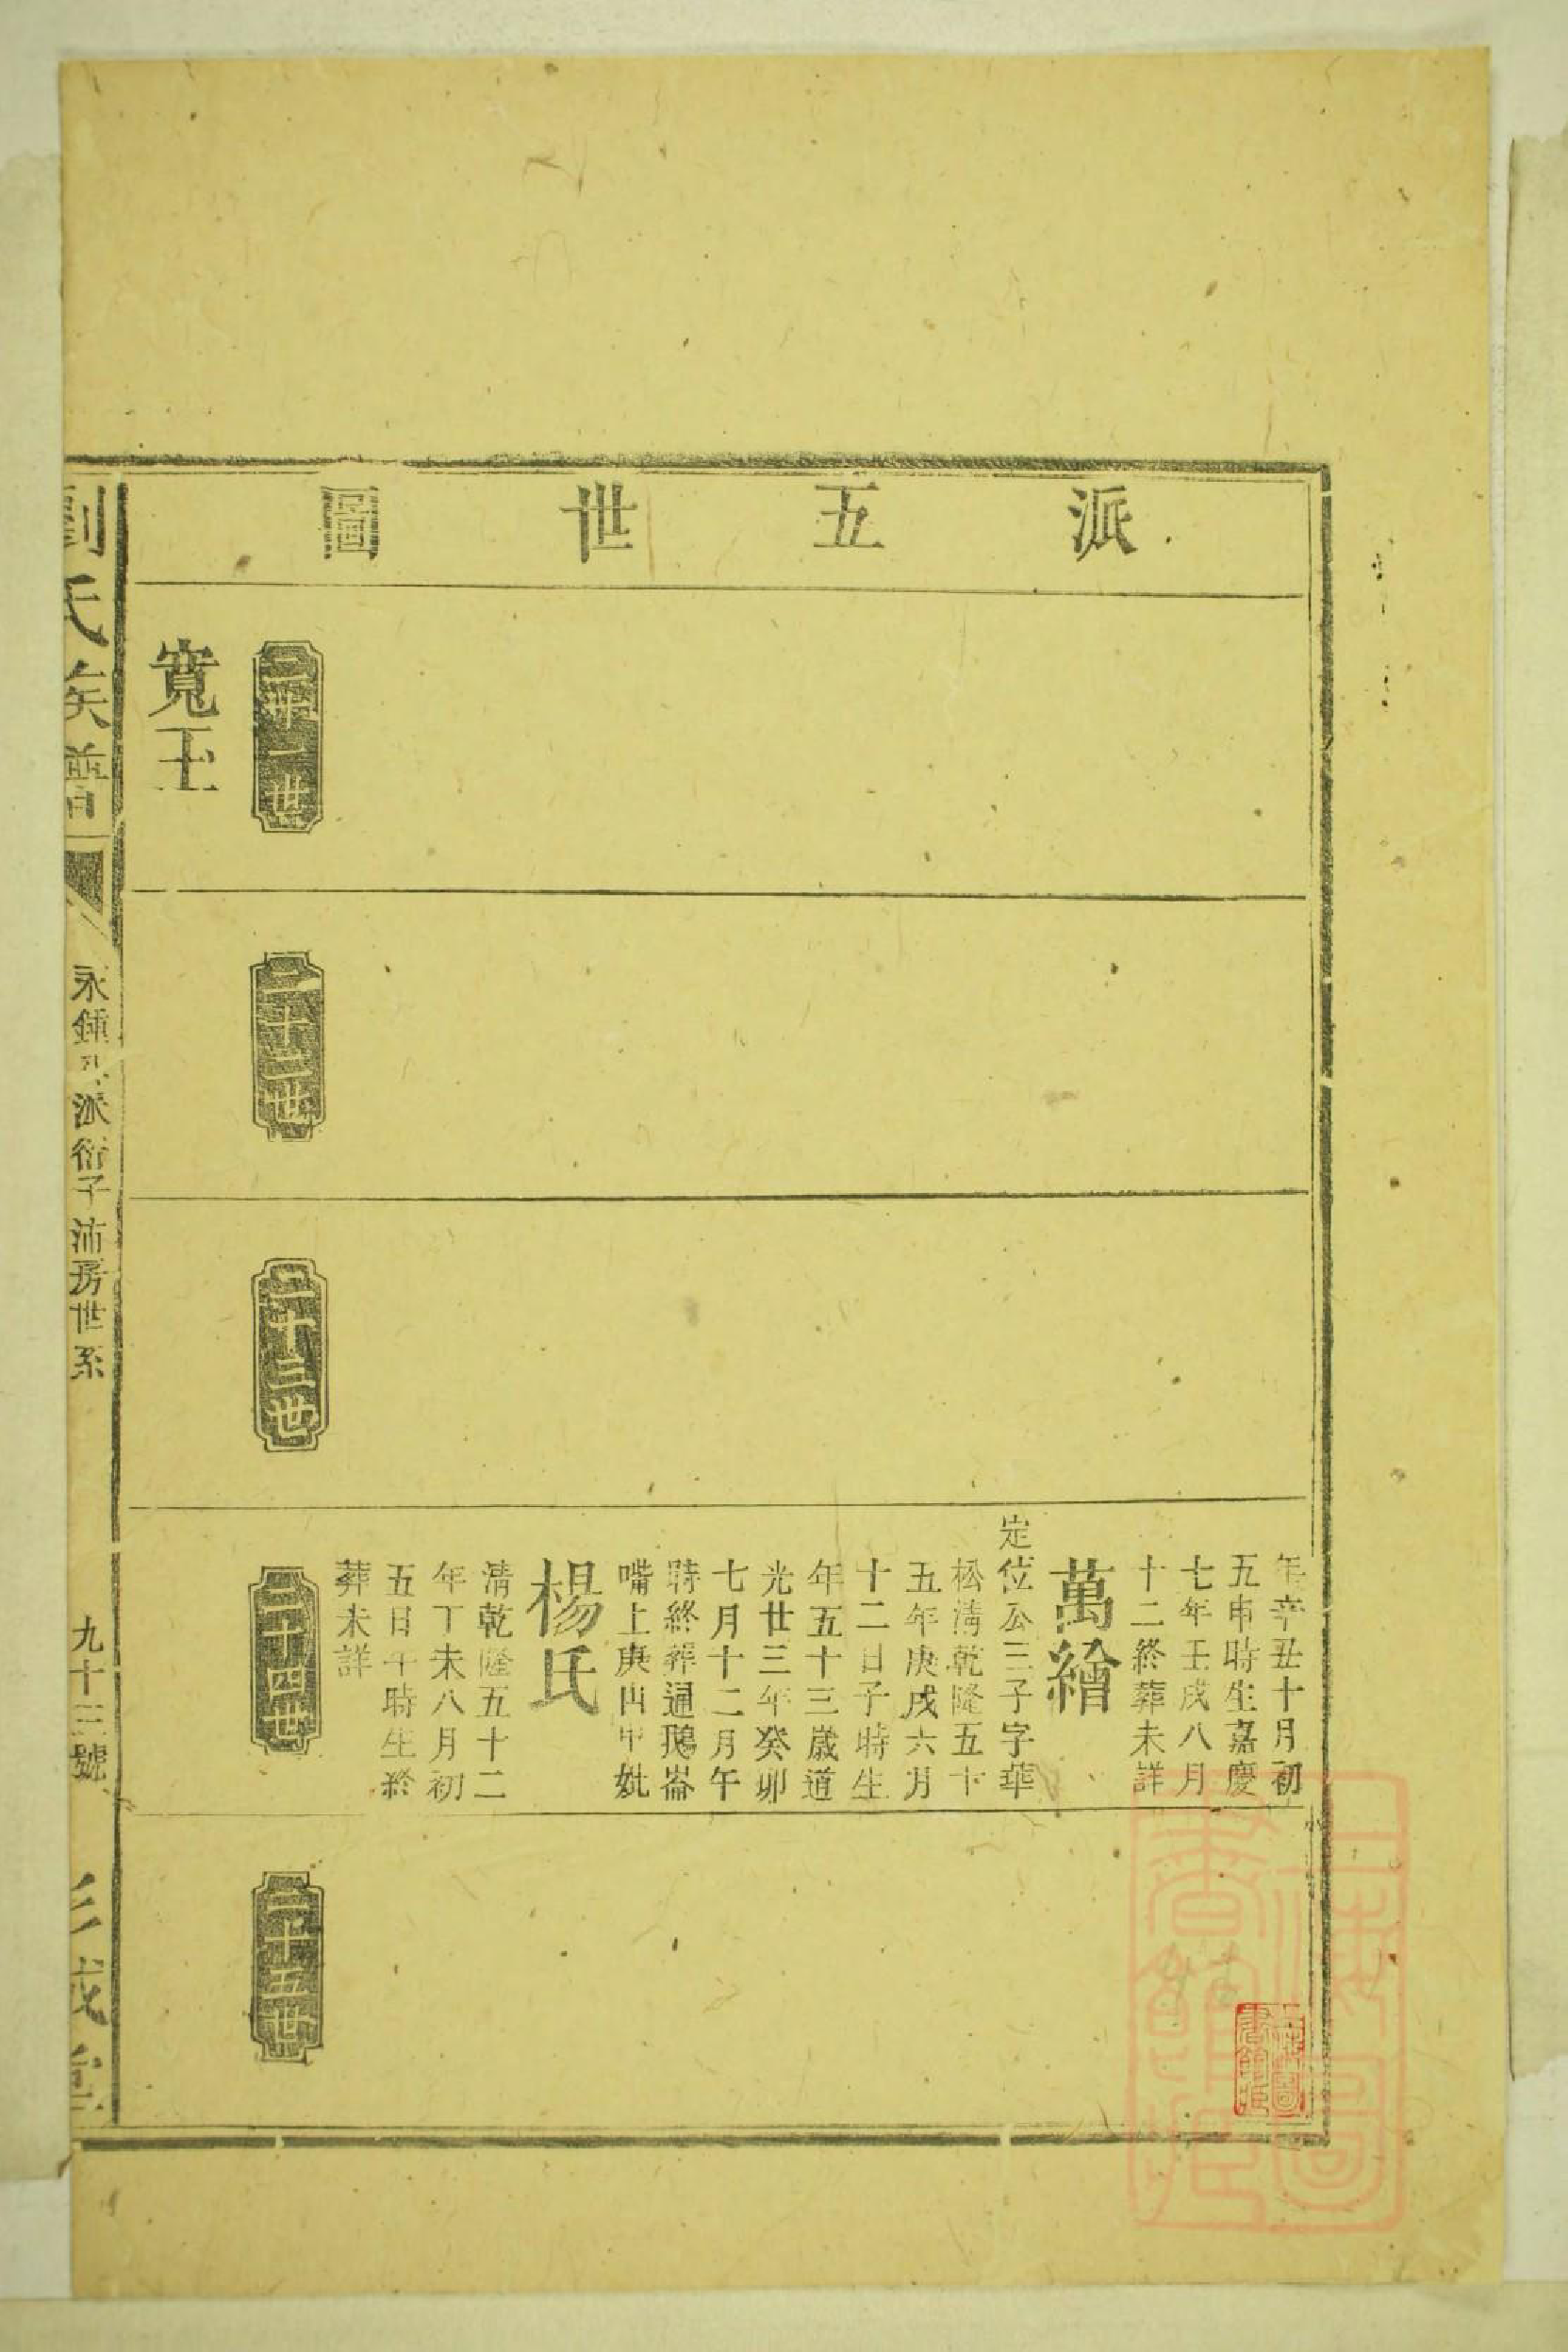 派五世圖
年辛丑十月初
五申時生嘉慶
七年壬戌八月
十二終葬未詳
萬繪
定位公三子字華
松清乾隆五十
五年庚戌六月
十二日子時生
年五十三歲道
光廿三年癸卯
七月十二月午
時終葬通鵝崙
嘴上庚山甲
楊氏
清乾隆五十二
年丁未八月初
五日午時生終
葬未詳
二十一世
二十二世
二十三世
二十四世
二十五世
寬玉
劉氏族譜
永鍾公派衍子沛房世系
九十三號
彭城堂
上海圖書館藏